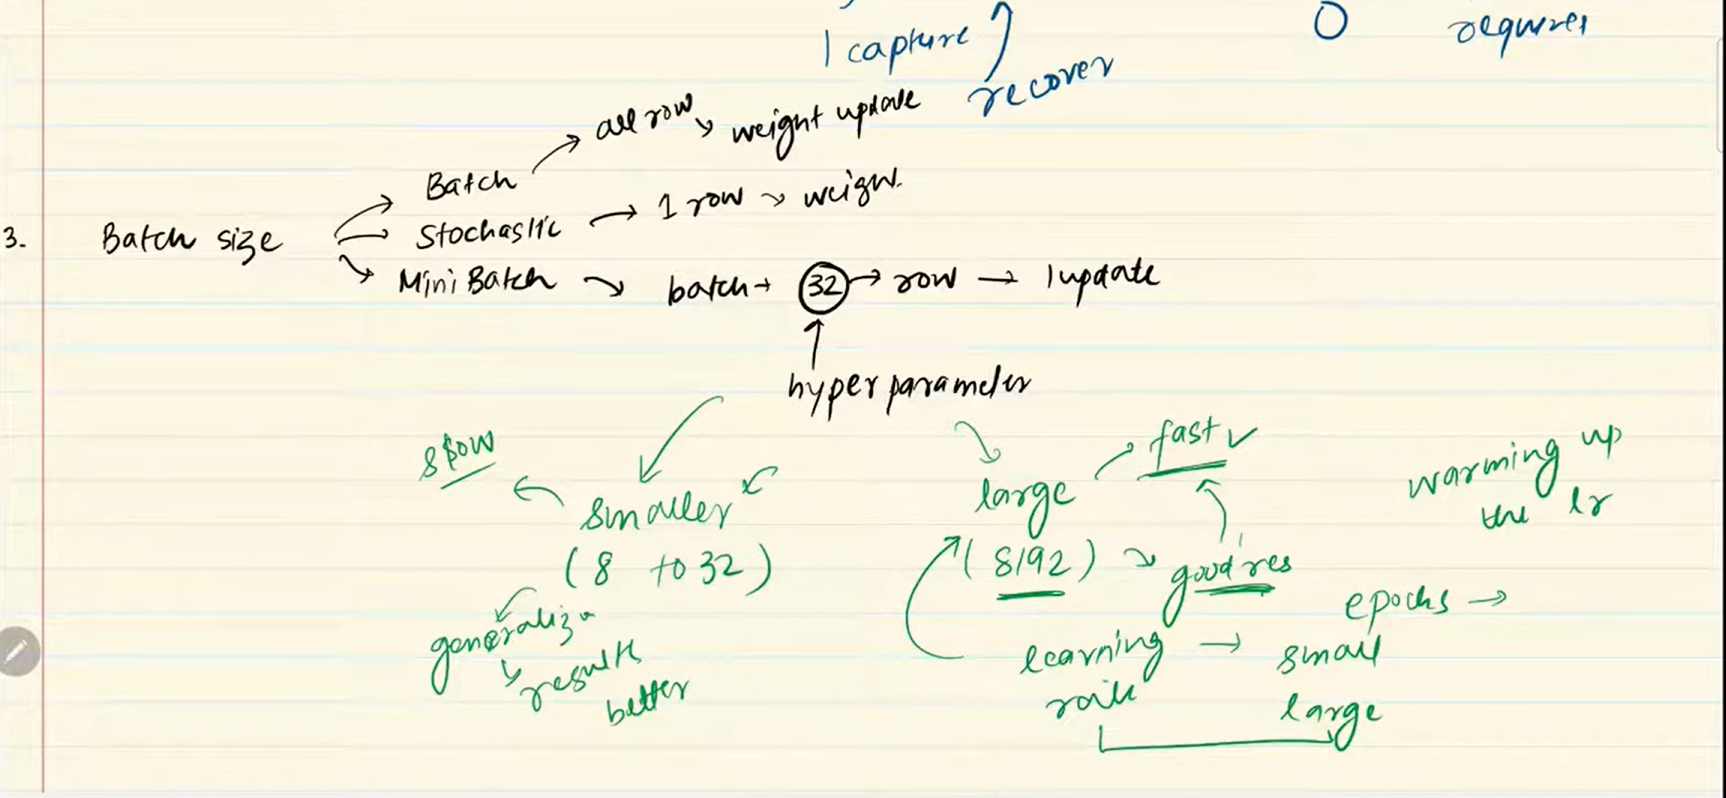 1 capture
recover
O
requires
all row
weight update
3.
Batch size
Batch
Stochastic
1 row
weigh
Mini Batch
batch
32
row
1 update
hyperparameter
slow
smaller
(8 to 32)
generaliza
results
better
large
fast ✓
(8192)
good res
learning
rate
small
large
epochs
warming up
the lr